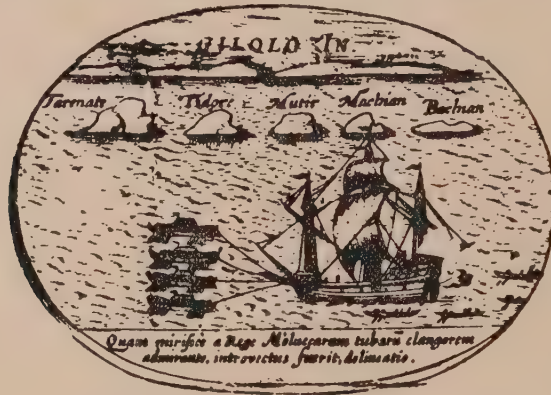 GILOLO IN
Tarenate Tidore Mutir Machian Bachian
Quam mirificè a Rege Moluccarum tubarū clangorem
admirante, introvectus fuerit, delineatio.